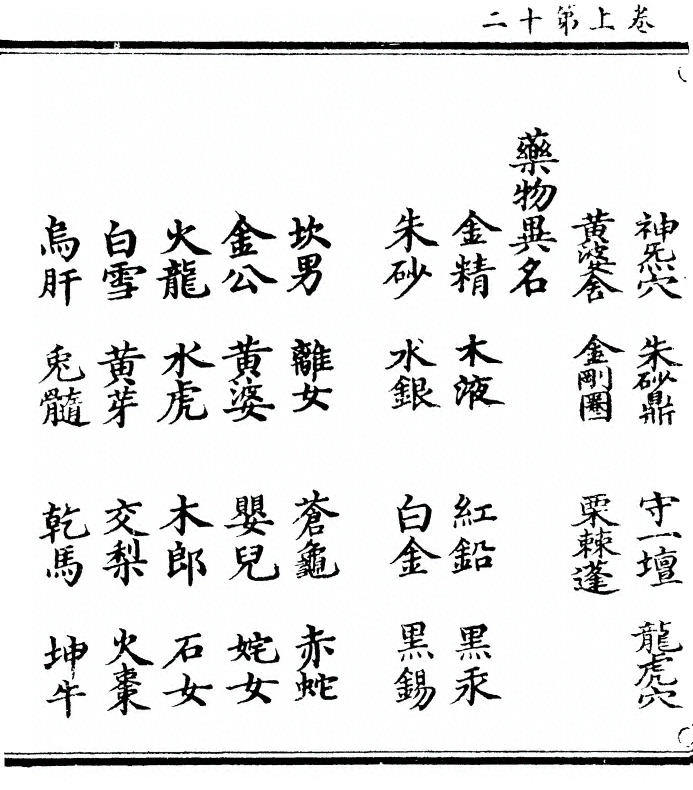 卷上第十二
神炁穴　朱砂鼎　守一壇　龍虎穴
黃婆舍　金剛圈　栗棘蓬
藥物異名
金精　木液　紅鉛　黑汞
朱砂　水銀　白金　黑錫
坎男　離女　蒼龜　赤蛇
金公　黃婆　嬰兒　姹女
火龍　水虎　木郎　石女
白雪　黃芽　交梨　火棗
烏肝　兎髓　乾馬　坤牛